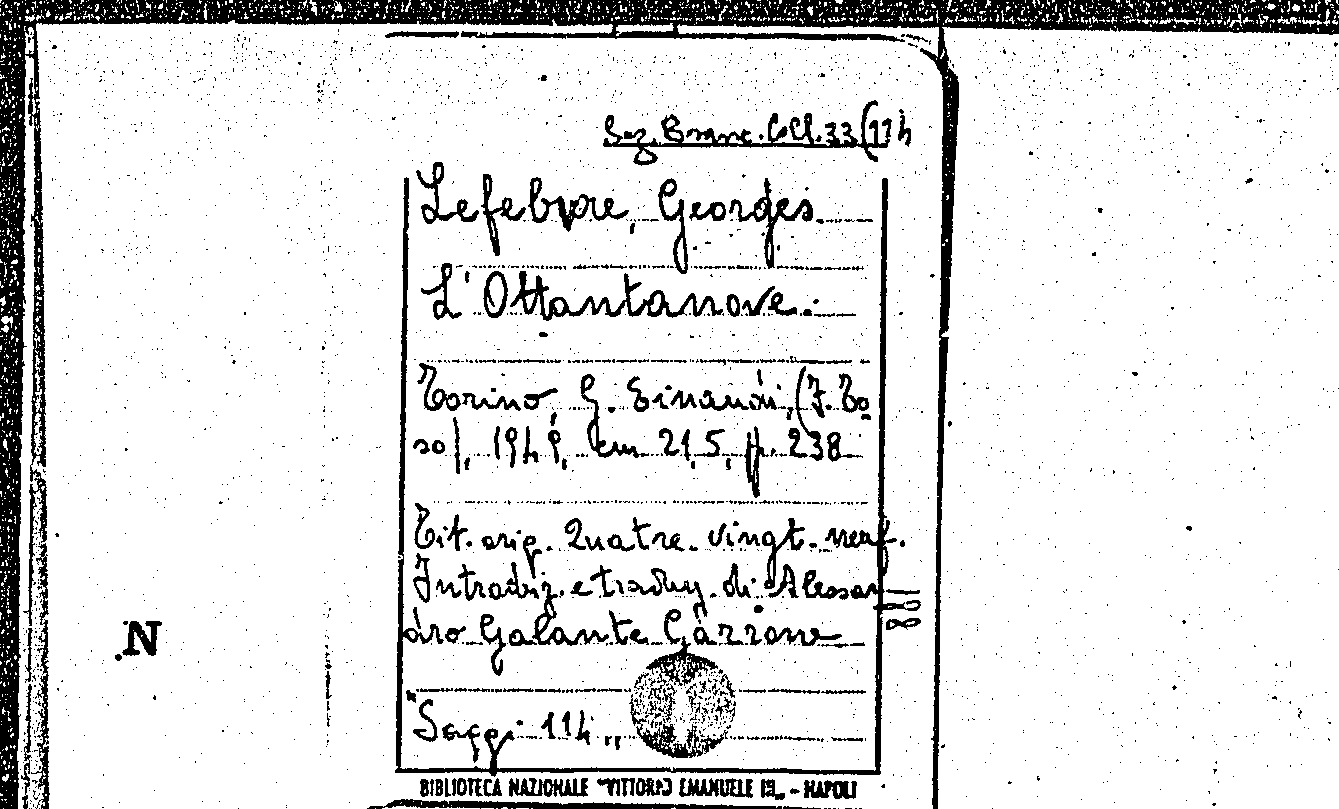 Sez. Branc. Coll. 33 (114
Lefebvre, Georges.
L'Ottantanove.
Torino, G. Einaudi, (F. To
so), 1949, cm 21,5, p. 238
Tit. orig. Quatre. vingt. neuf.
Introduz. e traduz. di Alessan
dro Galante Garrone
"Saggi 114"
BIBLIOTECA NAZIONALE "VITTORIO EMANUELE III" - NAPOLI
N